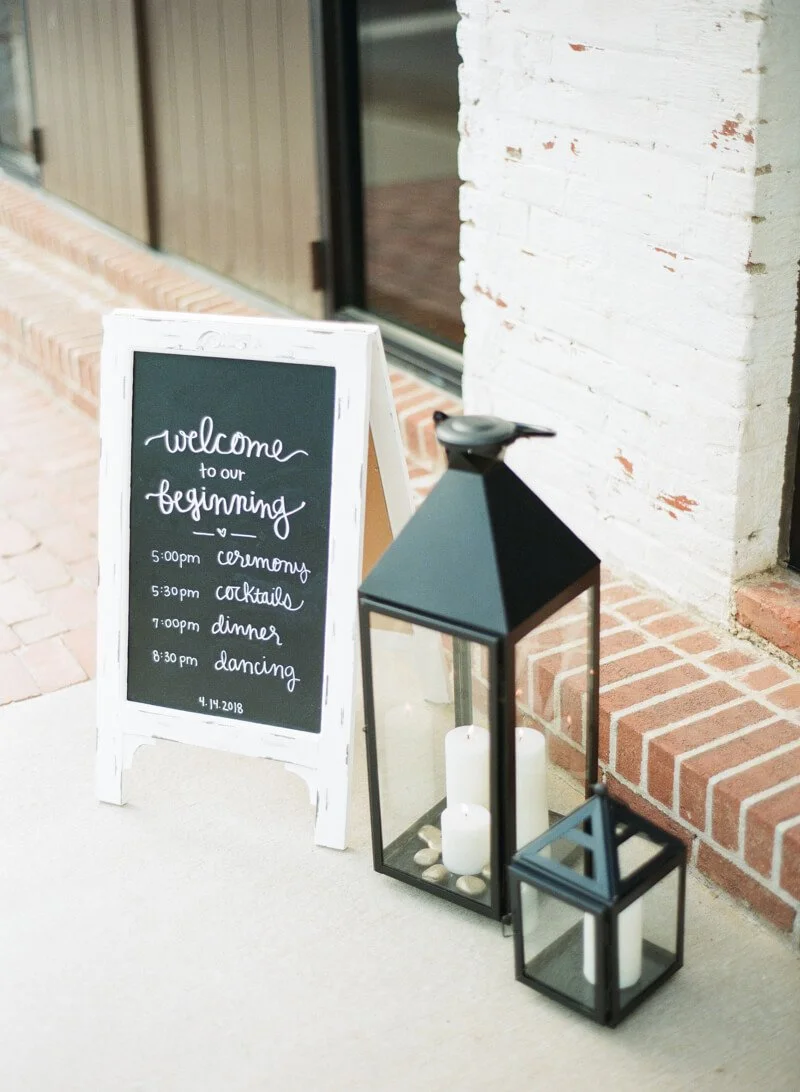 welcome
to our
beginning
5:00pm ceremony
5:30pm cocktails
7:00pm dinner
8:30pm dancing
4.14.2018